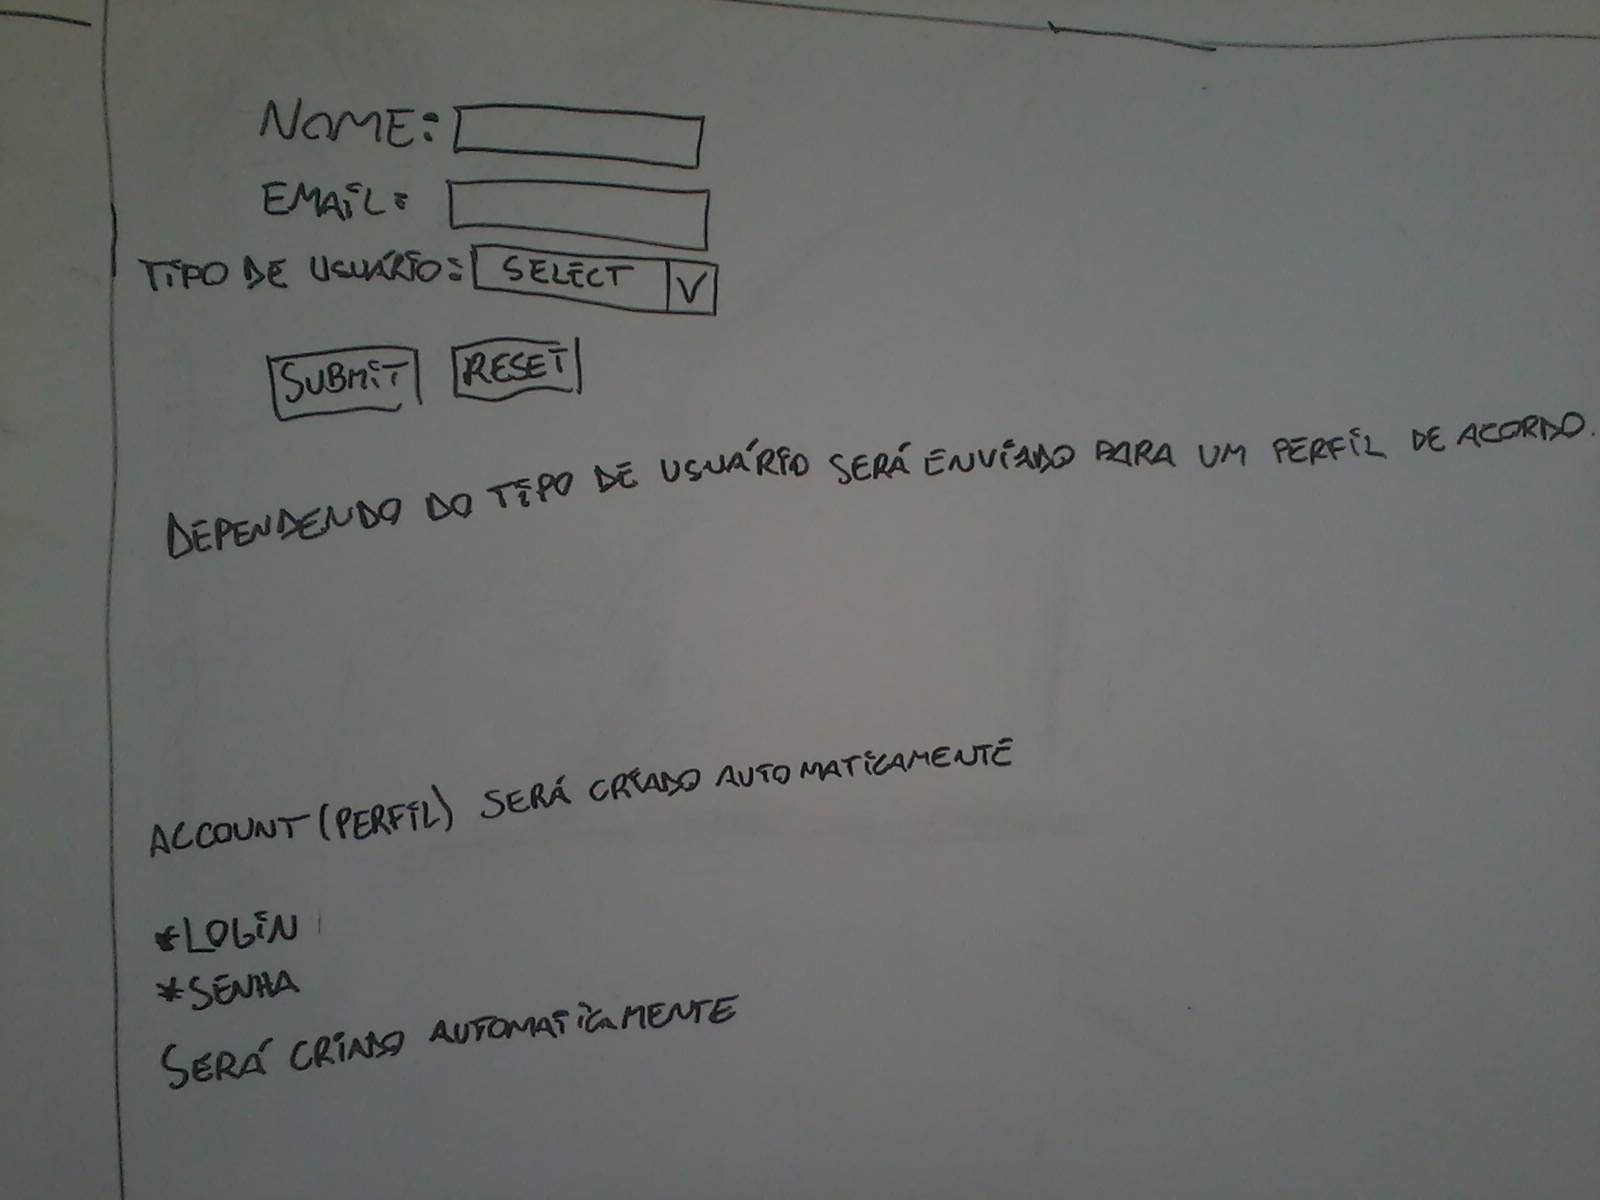 NOME:
EMAIL:
TIPO DE USUÁRIO: SELECT V
SUBMIT RESET
DEPENDENDO DO TIPO DE USUÁRIO SERÁ ENVIADO PARA UM PERFIL DE ACORDO.
ACCOUNT (PERFIL) SERÁ CRIADO AUTOMATICAMENTE
*LOGIN
*SENHA
SERÁ CRIADO AUTOMATICAMENTE